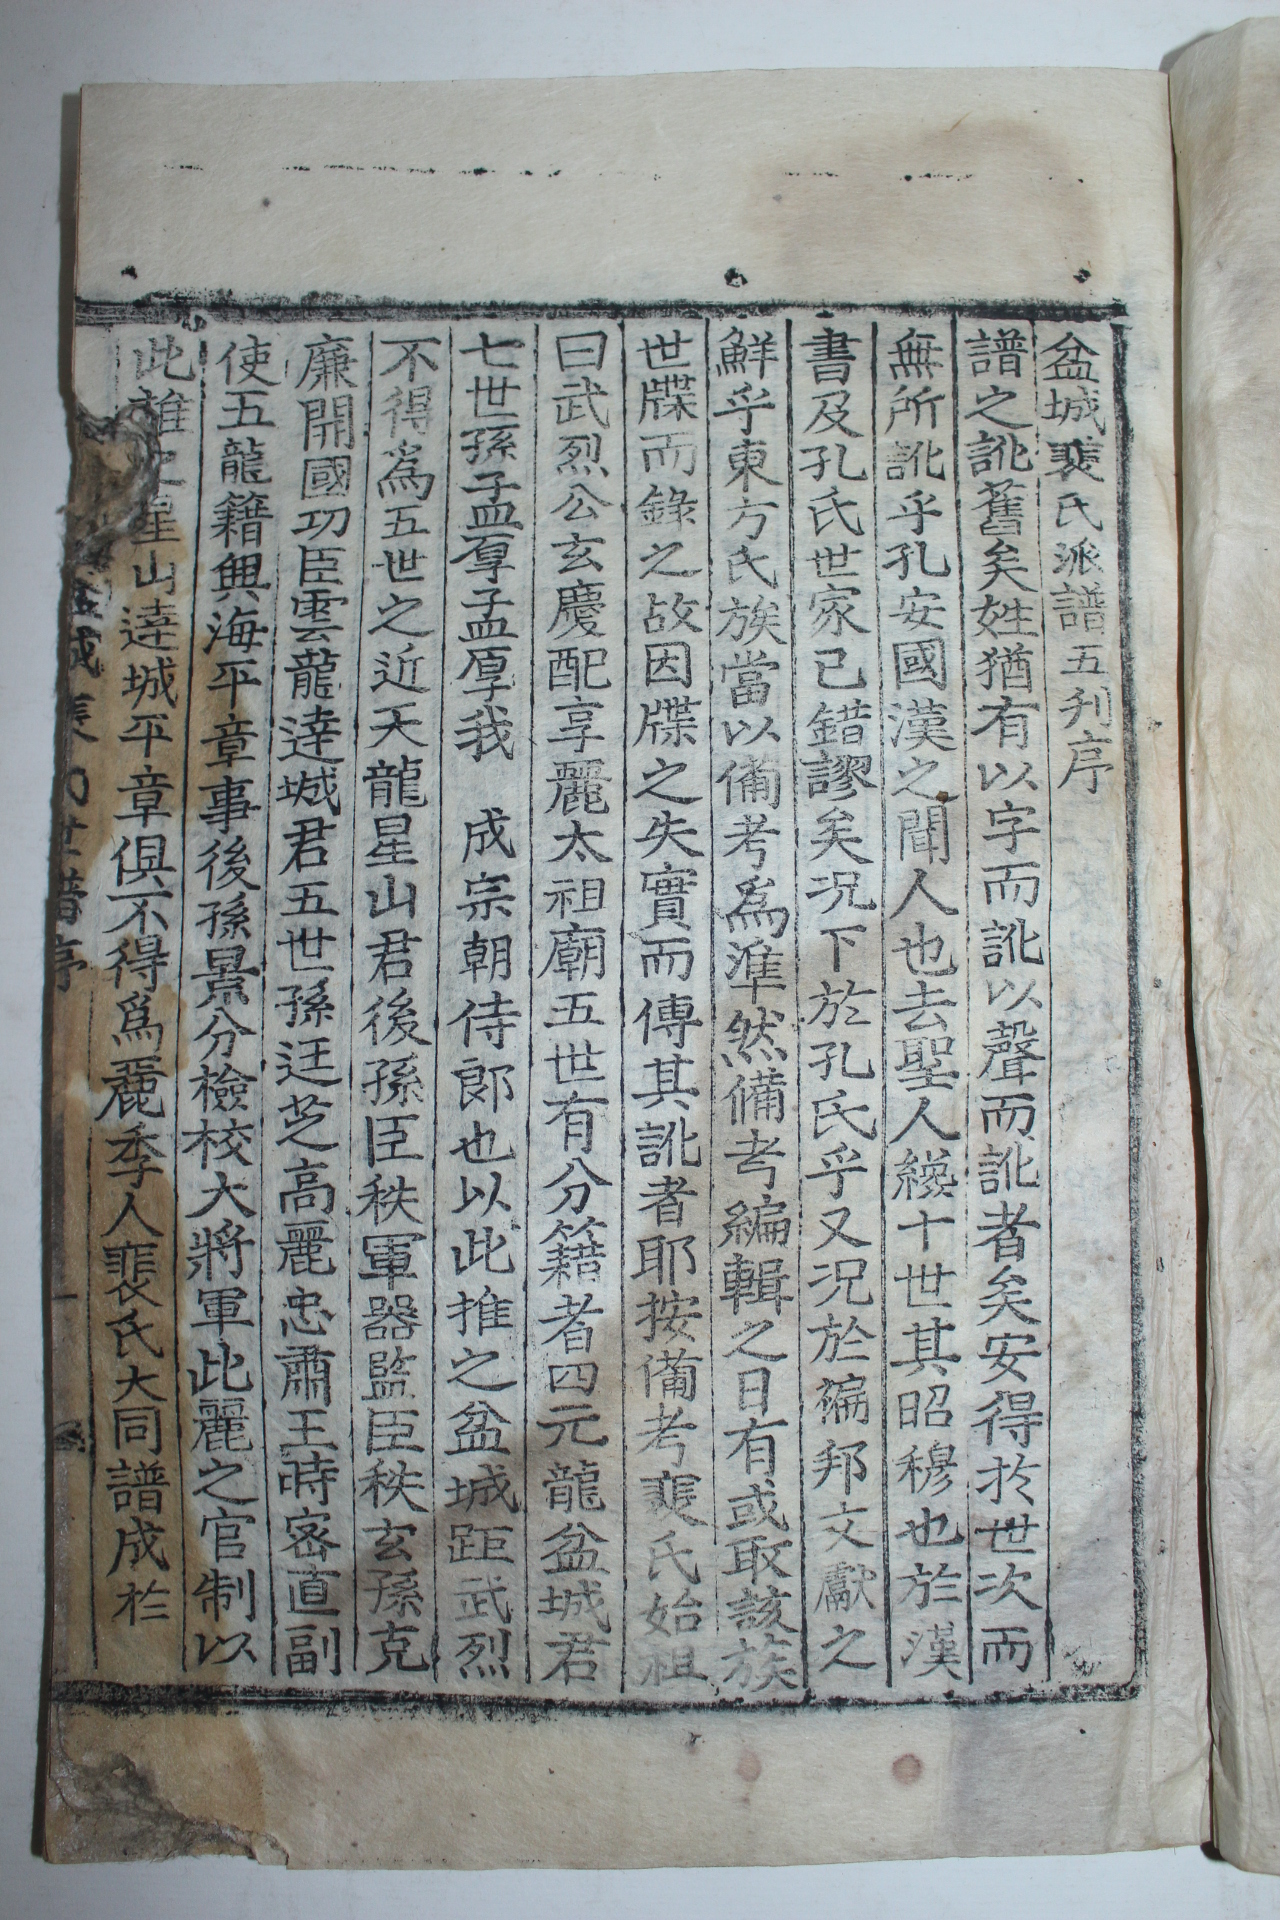 盆城裴氏派譜五刋序
譜之訛舊矣姓猶有以字而訛以聲而訛者矣安得於世次而
無所訛乎孔安國漢之聞人也去聖人纔十世其昭穆也於漢
書及孔氏世家已錯謬矣况下於孔氏乎又况於褊邦文獻之
鮮乎東方氏族當以備考爲準然備考編輯之日有或取該族
世牒而錄之故因牒之失實而傳其訛者耶按備考裴氏始祖
曰武烈公玄慶配享麗太祖廟五世有分籍者四元龍盆城君
七世孫孟厚孟厚我 成宗朝侍郞也以此推之盆城距武烈
不得爲五世之近天龍星山君後孫臣秩軍器監臣秩玄孫克
廉開國功臣雲龍達城君五世孫廷芝高麗忠肅王時密直副
使五龍籍興海平章事後孫景分檢校大將軍此麗之官制以
此推之星山達城平章俱不得爲麗季人裴氏大同譜成於